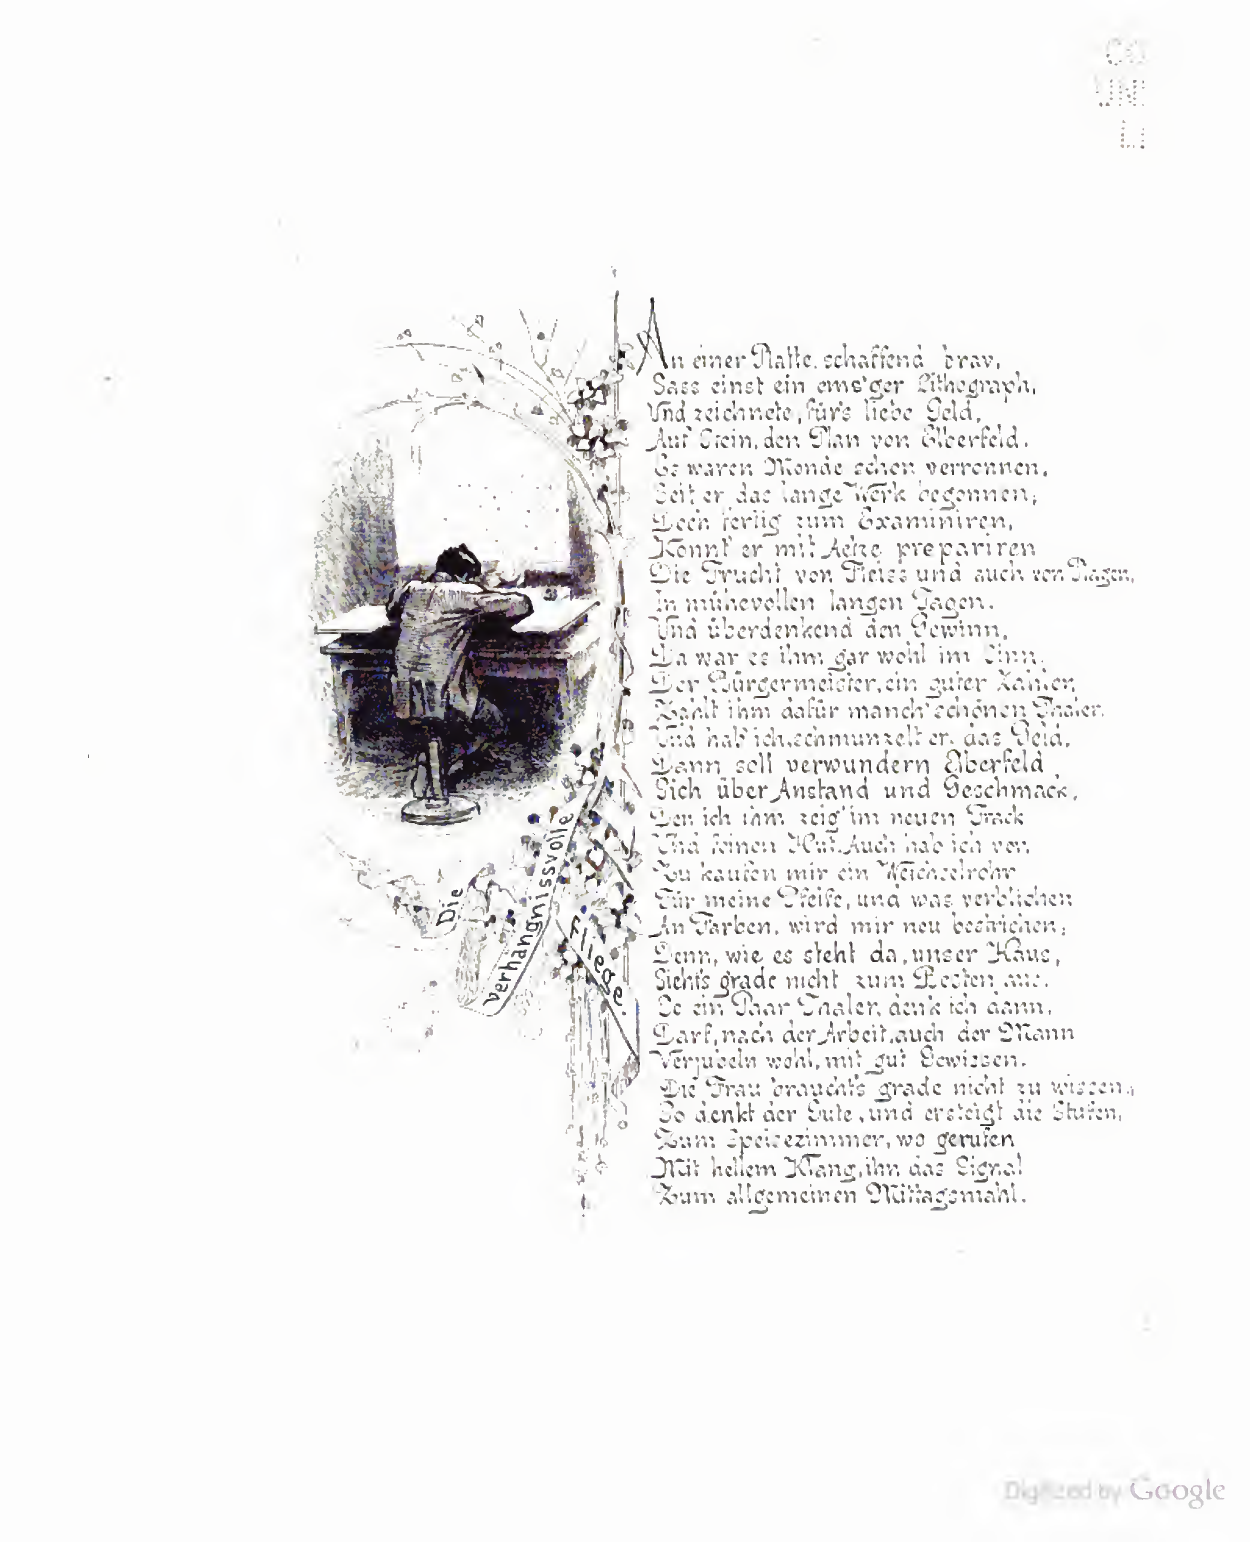 Die
verhängnissvolle
Fliege.
An einer Platte, schaffend brav,
Sass einst ein ems'ger Lithograph,
Und zeichnete, für's liebe Geld,
Auf Stein, den Plan von Elberfeld.
Es waren Monde schon verronnen,
Seit er das lange Werk begonnen;
Doch fertig zum Examiniren,
Konnt' er mit Aetze prepariren
Die Frucht von Fleiss und auch von Plagen,
In mühevollen langen Tagen.
Und überdenkend den Gewinn,
Da war es ihm gar wohl im Sinn.
Der Bürgermeister, ein guter Zahler,
Zahlt ihm dafür manch' schönen Thaler.
Und hab' ich, schmunzelt er, das Geld,
Dann soll verwundern Elberfeld
Sich über Anstand und Geschmack,
Den ich ihm zeig' im neuen Frack
Und feinen Hut. Auch hab ich vor,
Zu kaufen mir ein Weichselrohr
Für meine Pfeife, und was verblichen
An Farben, wird mir neu bestrichen;
Denn, wie es steht da, unser Haus,
Sieht's grade nicht zum Besten aus.
So ein Paar Thaler, denk ich dann,
Darf, nach der Arbeit, auch der Mann
Verjubeln wohl, mit gut Gewissen.
Die Frau braucht's grade nicht zu wissen.,
So denkt der Gute, und ersteigt die Stufen,
Zum Speisezimmer, wo gerufen
Mit hellem Klang, ihn das Signal
Zum allgemeinen Mittagsmahl.
Digitized by Google